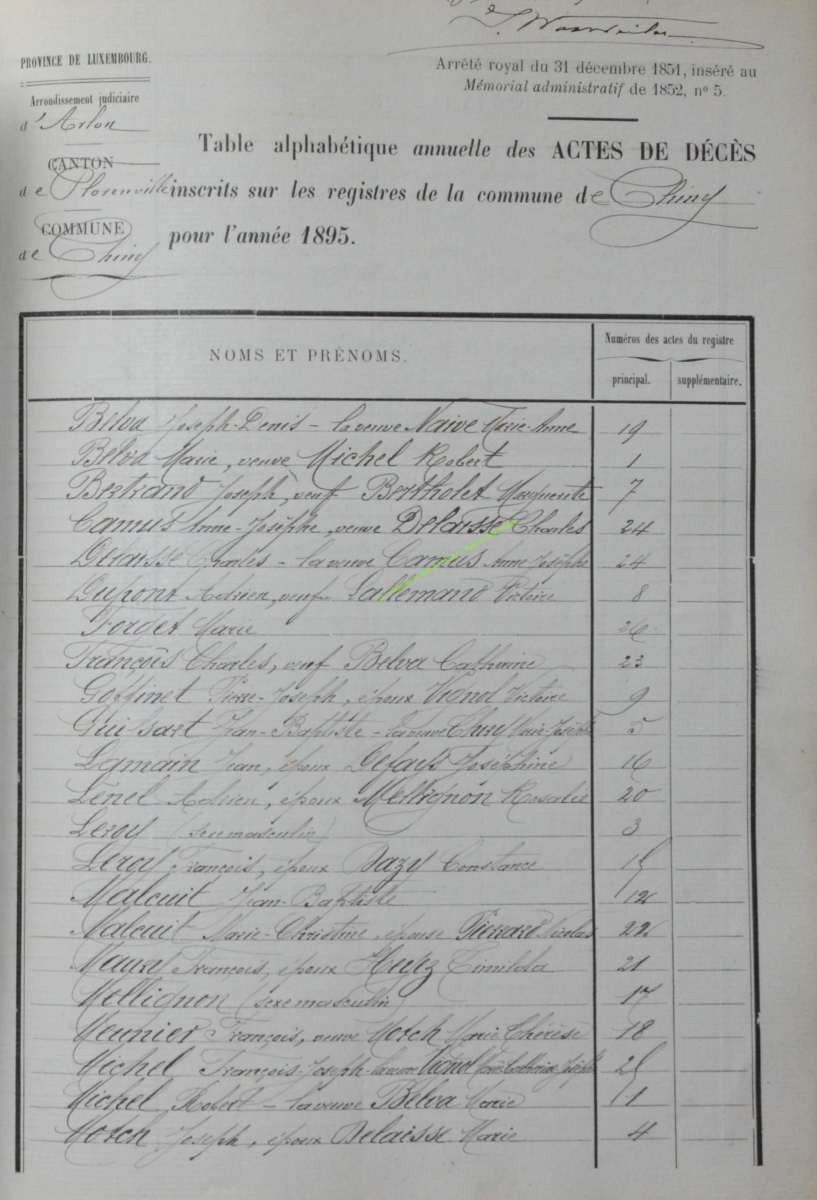 PROVINCE DE LUXEMBOURG.
Arrondissement judiciaire
d'Arlon
CANTON
de Florenville
COMMUNE
de Chiny
Arrêté royal du 31 décembre 1851, inséré au
Mémorial administratif de 1852, nº 5.
Table alphabétique annuelle des ACTES DE DÉCÈS
inscrits sur les registres de la commune de Chiny
pour l'année 1895.
NOMS ET PRÉNOMS.
Numéros des actes du registre
principal. supplémentaire.
Belva Joseph-Denis - la veuve Naive Marie-Anne 19
Belva Marie, veuve Michel Robert 1
Bertrand Joseph, veuf Bertholet Marguerite 7
Camus Anne-Josèphe, veuve Delaisse Charles 24
Delaisse Charles - la veuve Camus Anne Josèphe 24
Dupont Adrien, veuf Lallemand Victoire 8
Forget Marie 26
François Charles, veuf Belva Catherine 23
Goffinet Pierre-Joseph, époux Vignol Victoire 9
Guissart Jean-Baptiste - la veuve Chiny Marie Josèphe 5
Lamain Jean, époux Defays Joséphine 16
Lenel Adrien, époux Mellignon Rosalie 20
Leroy (sexe masculin) 3
Leroy François, époux Dazy Constance 15
Malcuit Jean-Baptiste 12
Malcuit Marie-Christine, épouse Pierrard Nicolas 22
Maury François, époux 21
Mellignon (sexe masculin) 17
Meunier François, veuve Morch Marie Thérèse 18
Michel François-Joseph - la veuve Vignol Marie Catherine Josèphe 25
Michel Robert - la veuve Belva Marie 1
Morch Joseph, époux Delaisse Marie 4